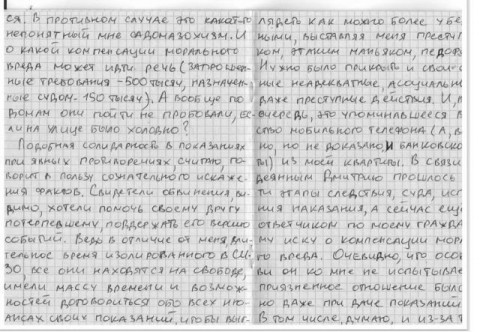 ся. В противном случае это какой-то
непонятный мне садомазохизм. И
о какой компенсации морального
вреда может идти речь (запрошен-
ные требования -500 тысяч, назначен-
ные судом- 150 тысяч). А вообще по
они пойти не пробовали, ес-
ли на улице было холодно?
Подобная солидарность в показаниях
при явных противоречиях, считаю, го-
ворит в пользу сознательного искаже-
ния фактов. Свидетели обвинения, ви-
димо, хотели помочь своему другу
потерпевшему, поддержать его версию
событий. Ведь в отличие от меня, дли-
тельное время изолированного в СИ-
ЗО, все они находятся на свободе,
имели массу времени и возмож-
ностей договориться обо всех ню-
ансах своих показаний, чтобы выг-
лядеть как можно более убе
ными, выставляя меня преступ
ком, этаким маньяком,
Нужно было прикрыть и свои с
ные неадекватные, асоциальн
даже преступные действия. И, п
очередь, это упоминавшееся
ство мобильного телефона (а, в
но, но не доказано, и банковско
ты) из моей квартиры. В связи
деянным Дмитрию прошлось
ти этапы следствия, суда, исп
ния наказания, а сейчас ещё
ответчиком по моему гражда
му иску о компенсации мор
го вреда. Очевидно, что особ
ви он ко мне не испытывае
приязненное отношение было
но даже при даче показаний
В том числе, думаю, и из-за т